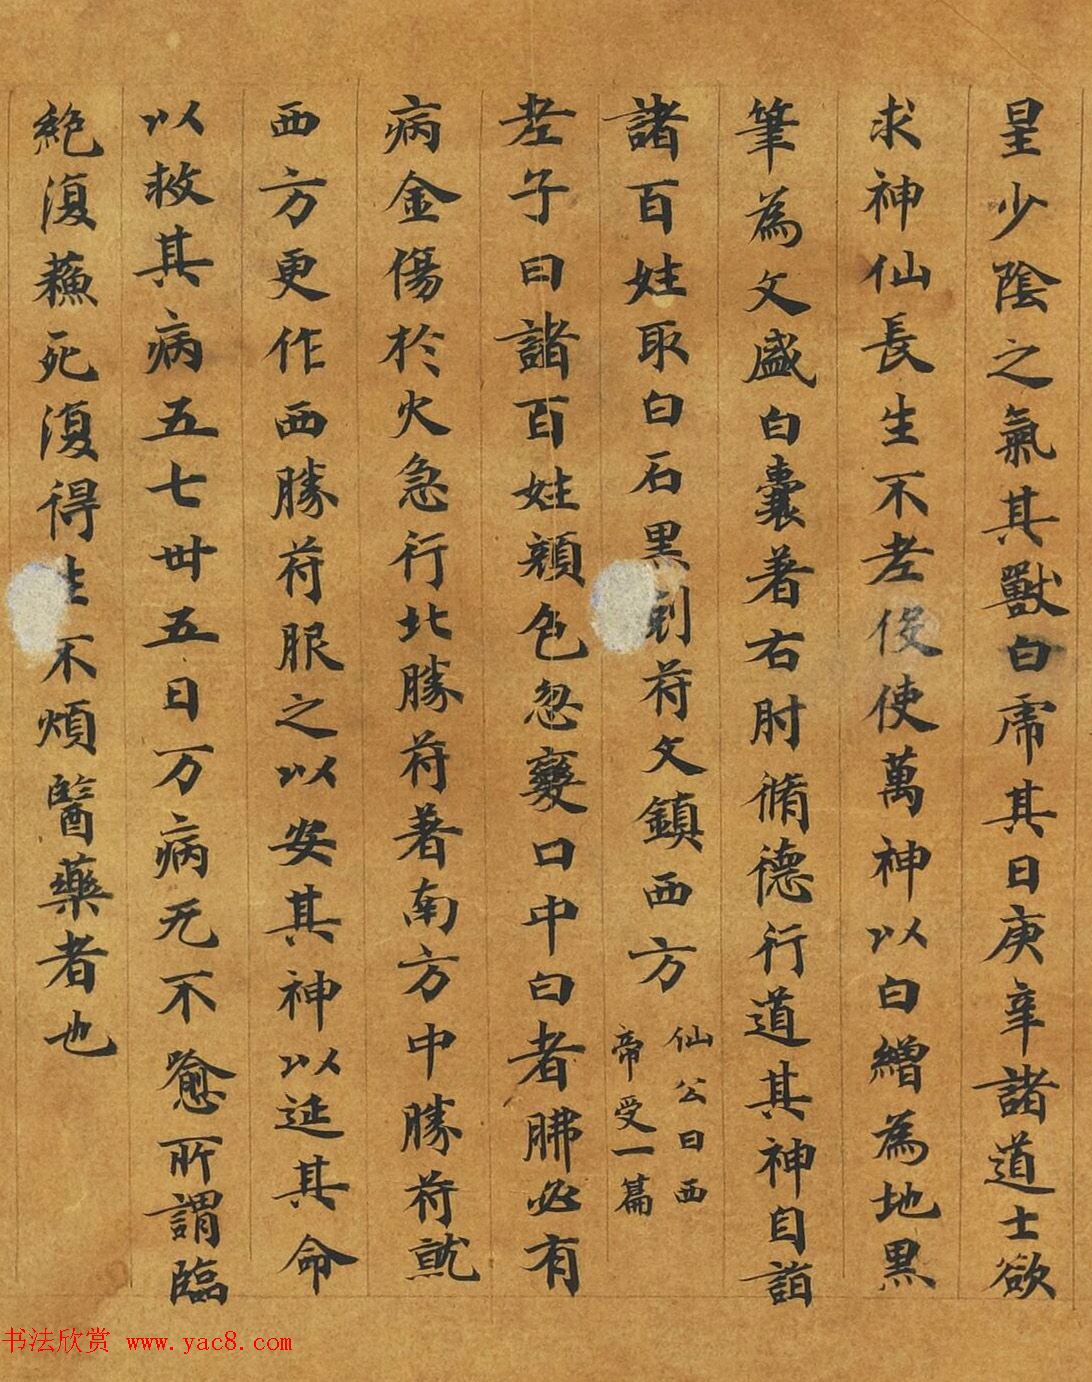 星少陰之氣其獸白虎其日庚辛諸道士欲
求神仙長生不老役使萬神以白繒為地黑
筆為文盛白囊著右肘脩德行道其神自詣
諸百姓取白石黑刻符文鎮西方
仙公曰西
帝受一篇
老子曰諸百姓顏色忽變口中白者肺必有
病金傷於火急行北勝符著南方中勝符就
西方更作西勝符服之以安其神以延其命
以救其病五七卅五日万病无不愈所謂臨
絶復蘓死復得生不煩醫藥者也
书法欣赏 www.yac8.com